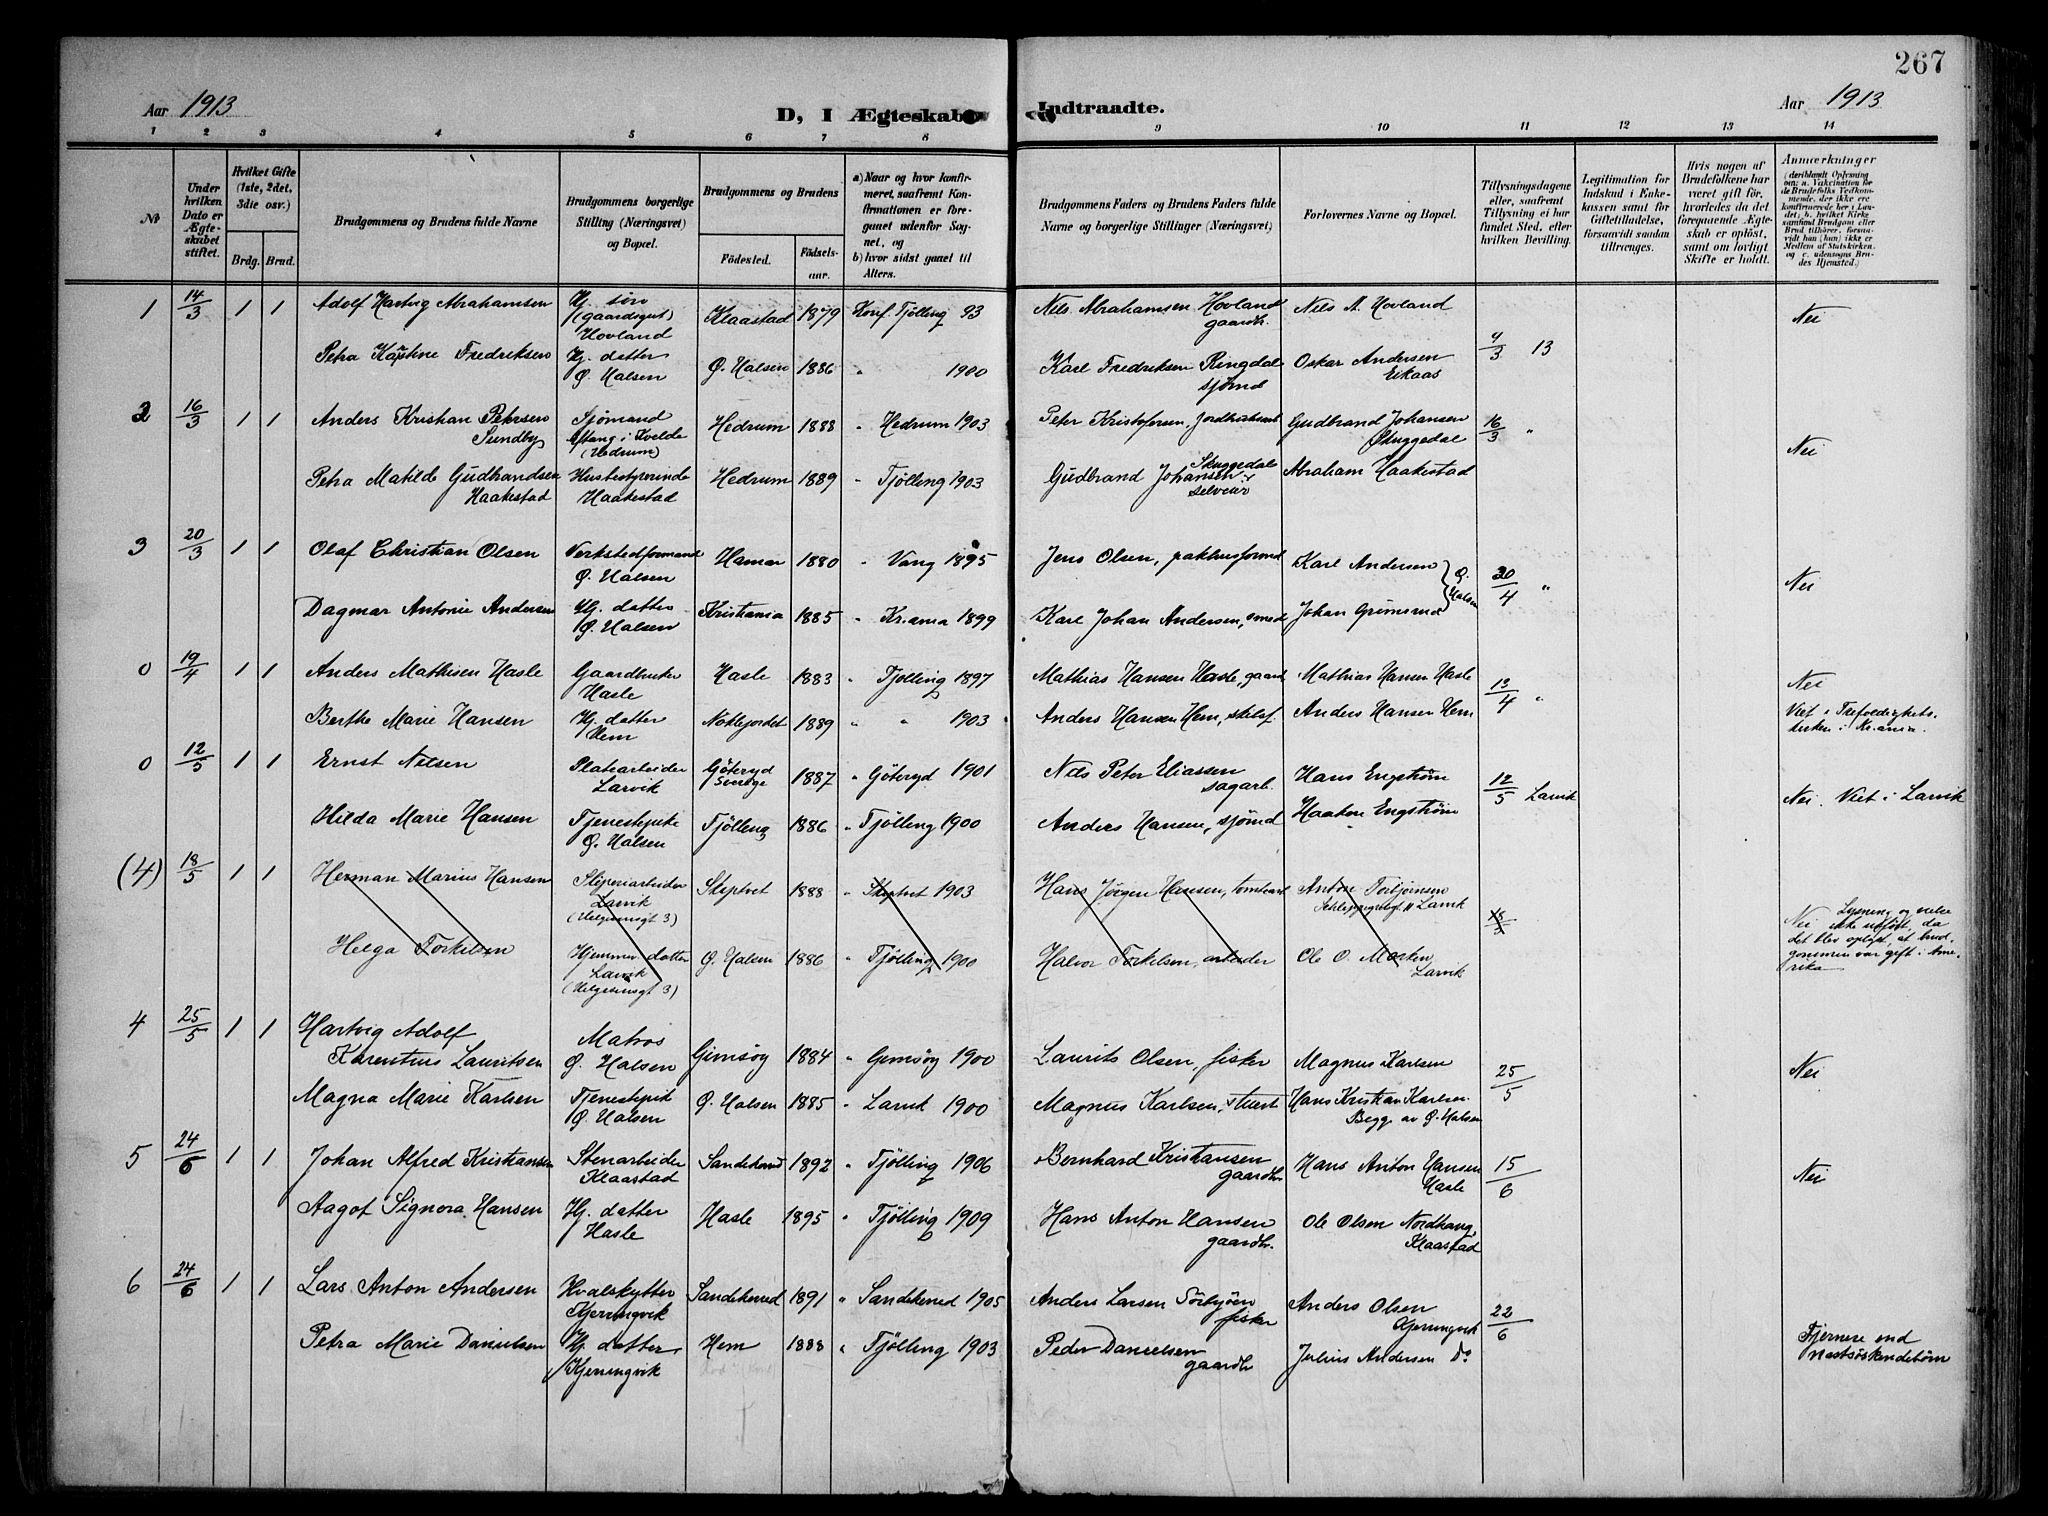 267
Aar 1913
D, I Ægteskab
Indtraadte.
Aar 1913
1 2 3 4 5 6 7 8 9 10 11 12 13 14
No
Under hvilken Dato er Ægteskabet stiftet.
Hvilket Gifte (1ste, 2det, 3die osv.)
Brdg. Brud.
Brudgommens og Brudens fulde Navne
Brudgommens borgerlige Stilling (Næringsvei) og Bopæl.
Brudgommens og Brudens
Fødested.
Fødselsaar.
a) Naar og hvor konfirmeret, saafremt Konfirmationen er foregaaet udenfor Sognet, og
b) hvor sidst gaaet til Alters.
Brudgommens Faders og Brudens Faders fulde Navne og borgerlige Stillinger (Næringsvei)
Forlovernes Navne og Bopæl.
Tillysningsdagene eller, saafremt Tillysning ei har fundet Sted, efter hvilken Bevilling.
Legitimation for Indskud i Enkekassen samt for Giftetilladelse, forsaavidt saadan tiltrænges.
Hvis nogen af Brudefolkene har været gift før, hvorledes da det foregaaende Ægteskab er opløst, samt om lovligt Skifte er holdt.
Anmærkninger
(deriblandt Oplysning om: a. Vakcination for de Brudefolks Vedkommende, der ikke ere konfirmerede her i Landet; b. hvilket Kirkesamfund Brudgom eller Brud tilhører, forsaavidt han (hun) ikke er Medlem af Statskirken, og c. udensogns Brudes Hjemsted.)
1 14/3 1 1 Adolf Hartvig Abrahamsen Hj. søn (gaardsgut) Hovland Klaastad 1879 Konf. Tjølling 93 Nils Abrahamsen Hovland gaardbr. Nils A. Hovland Nei
Petra Kastine Fredriksen Hj. datter Ø. Halsen Ø. Halsen 1886 " 1900 Karl Fredriksen Ringdal sjømd Oskar Andersen Eikaas 9/3 13
2 16/3 1 1 Anders Kristian Petersen Sundby Sjømand Hedrum 1888 " Hedrum 1903 Peter Kristofersen, Gudbrand Johansen Skuggedal 16/3 " Nei
i Kvelde (Hedrum)
Petra Matilde Gudbrandsen Haakestad Husbestyrerinde Haakestad Hedrum 1889 " Tjølling 1903 Gudbrand Johansen Skuggedal selveier Abraham Haakestad
3 20/3 1 1 Olaf Christian Olsen Verkstedformand Ø. Halsen Hamar 1880 " Vang 1895 Jens Olsen, pakhusformd Karl Andersen Ø. Halsen 20/4 " Nei
Dagmar Antonie Andersen Hj. datter Ø. Halsen Kristiania 1885 " Kr.ania 1899 Karl Johan Andersen, smed Johan Grimsrud
0 19/4 1 1 Anders Mathisen Hasle Gaardbruker Hasle Hasle 1883 " Tjølling 1897 Mathias Hansen Hasle, gaard Mathias Hansen Hasle 13/4 " Nei
Berthe Marie Hansen Hj. datter Hem 1889 " " 1903 Anders Hansen Hem, Anders Hansen Hem Viet i Trefoldighetskirken i Kr.ania.
0 12/5 1 1 Ernst Nilsen Platearbeider Larvik Göteryd Sverige 1887 " Göteryd 1901 Nils Peter Eliassen sagarb. Hans Engstrøm 12/5 Larvik Nei. Viet i Larvik
Hilda Marie Hansen Tjenestepike Ø. Halsen Tjølling 1886 " Tjølling 1900 Anders Hansen, sjømd Haaken Engstrøm
(4) 18/5 1 1 Herman Marius Hansen Sliperiarbeider Larvik (Helgesensgt 3) Skiptvet 1888 " Skiptvet 1903 Hans Jørgen Hansen, Anton Torbjørnsen Larvik 18/5 Nei Lysning og vielse ikke utført, da det blev oplyst, at brudgommen var gift i Amerika
Helga Torkelsen Hjemmev. datter Larvik (Helgesensgt 3) Ø. Halsen 1886 " Tjølling 1900 Halvor Torkelsen, arbeider Ole O. Morken, Larvik
4 25/5 1 1 Hartvig Adolf Karentius Lauritsen Matros Ø. Halsen Gimsøy 1884 " Gimsøy 1900 Laurits Olsen, fisker Magnus Karlsen 25/5 Nei
Magna Marie Karlsen Tjenestepik Ø. Halsen Ø. Halsen 1885 " Larvik 1900 Magnus Karlsen, stuert Hans Kristian Karlsen Begge av Ø. Halsen
5 24/6 1 1 Johan Alfred Kristiansen Stenarbeider Klaastad Sandeherred 1892 " Tjølling 1906 Bernhard Kristiansen gaardbr. Hans Anton Hansen Hasle 15/6 Nei
Aagot Signora Hansen Hj. datter Hasle Hasle 1895 " Tjølling 1909 Hans Anton Hansen gaardbr. Ole Olsen Nordhaug, Klaastad
6 24/6 1 1 Lars Anton Andersen Hvalskytter Kjerringvik Sandeherred 1891 " Sandeherred 1905 Anders Larsen fisker Anders Olsen Kjerringvik 22/6
Petra Marie Danielsen Hj. datter Kjerringvik Hem 1888 " Tjølling 1903 Peder Danielsen gaardbr Julius Andersen Do Fjernere end næstsøskendebørn